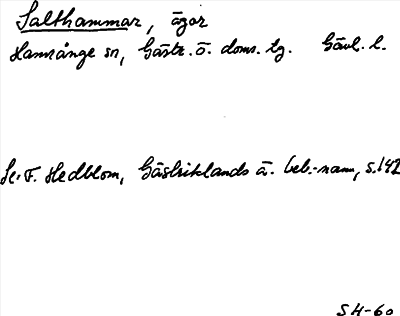 Salthammar, ägor
Hamrånge sn, Gästr. ö. doms. tg. Gävl. l.
Se: F. Hedblom, Gästriklands ä. beb.-namn, s. 142
S H-60